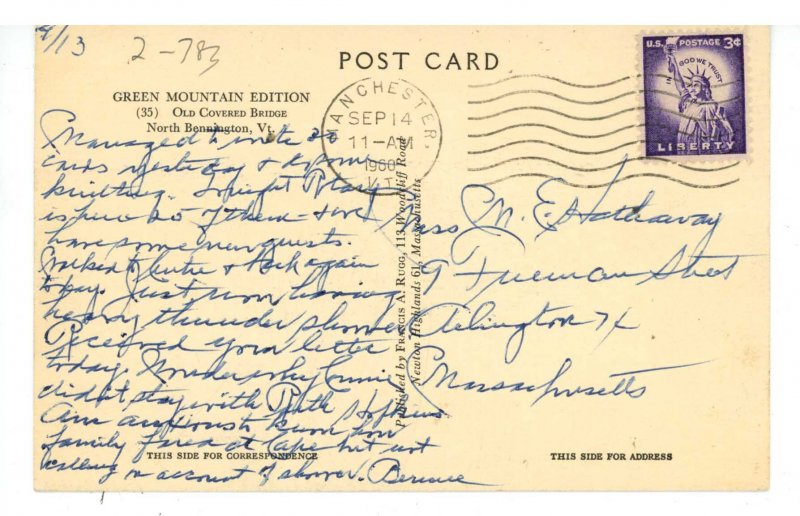 9/13
2-783
POST CARD
GREEN MOUNTAIN EDITION
(35) OLD COVERED BRIDGE
North Bennington, Vt.
MANCHESTER,
SEP 14
11-AM
1960
VT.
U.S. POSTAGE 3¢
IN GOD WE TRUST
LIBERTY
Managed to write 30
cards yesterday & do some
knitting. Tonight Rotary
is here 25 of them - & we
have some new guests.
& Pack again
today. Just now having
heavy thunder shower
Received your letter
today. Wonder why Connie
didn't stay with Ruth Hopkins.
Am anxious to know how
family fared at Cape but not
calling on account of shower. Bernice
Published by FRANCIS A. RUGG, 113 Woodcliff Road
Newton Highlands 61, Massachusetts
Miss M. E. Hathaway
9 Freeman Street
Arlington 74
Massachusetts
THIS SIDE FOR CORRESPONDENCE
THIS SIDE FOR ADDRESS